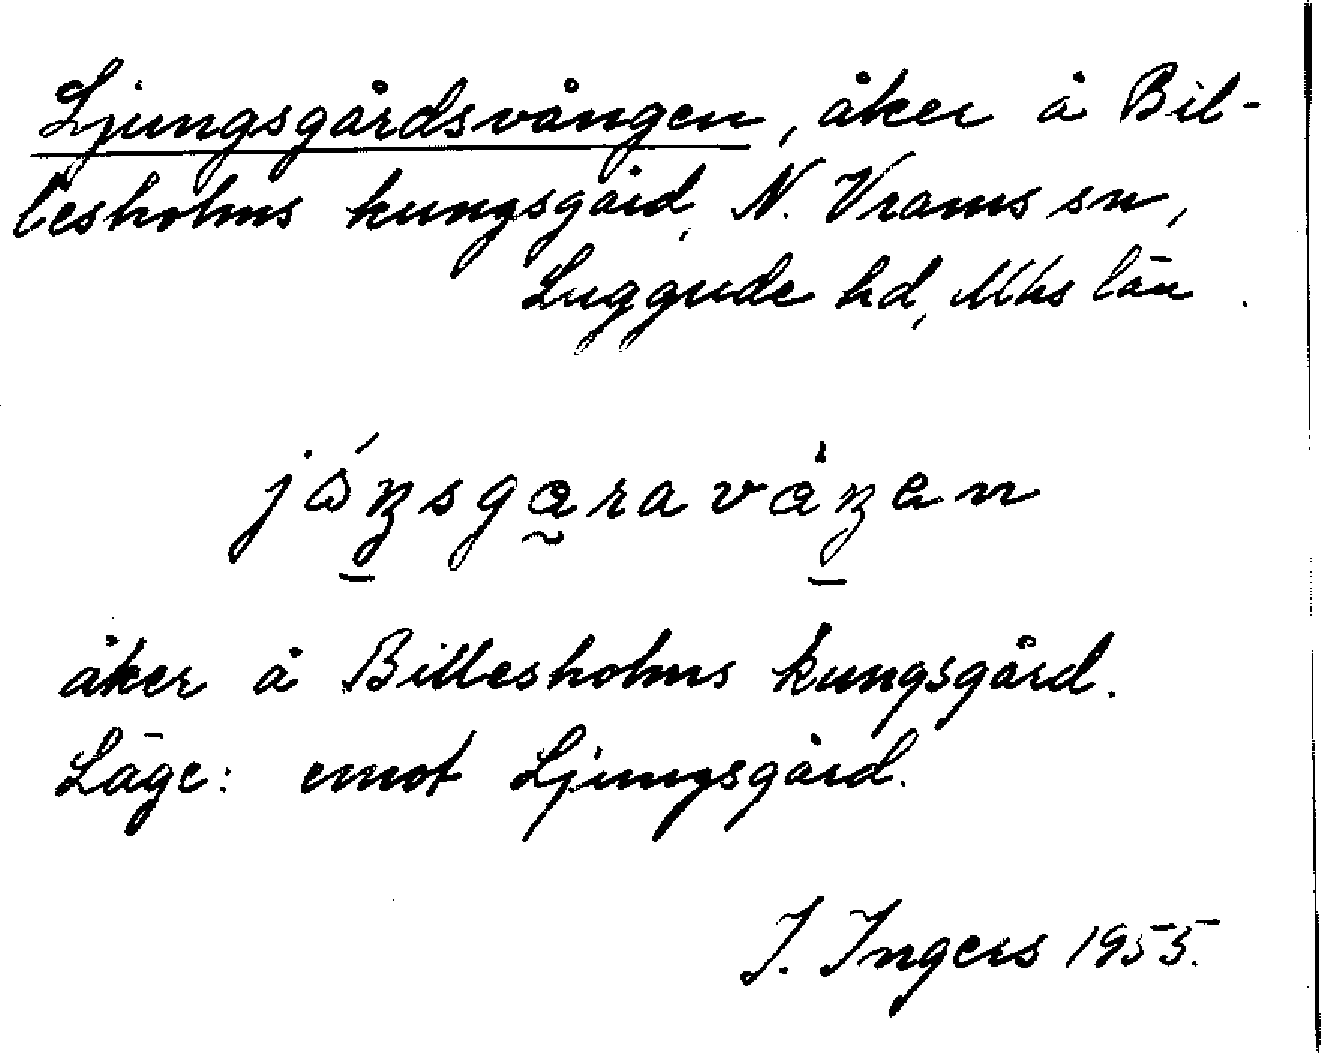 Ljungsgårdsvången, åker å Bil-
lesholms kungsgård, N. Vrams sn,
Luggude hd, Mhs län.
åker å Billesholms kungsgård.
Läge: emot Ljungsgård.
I. Ingers 1955.